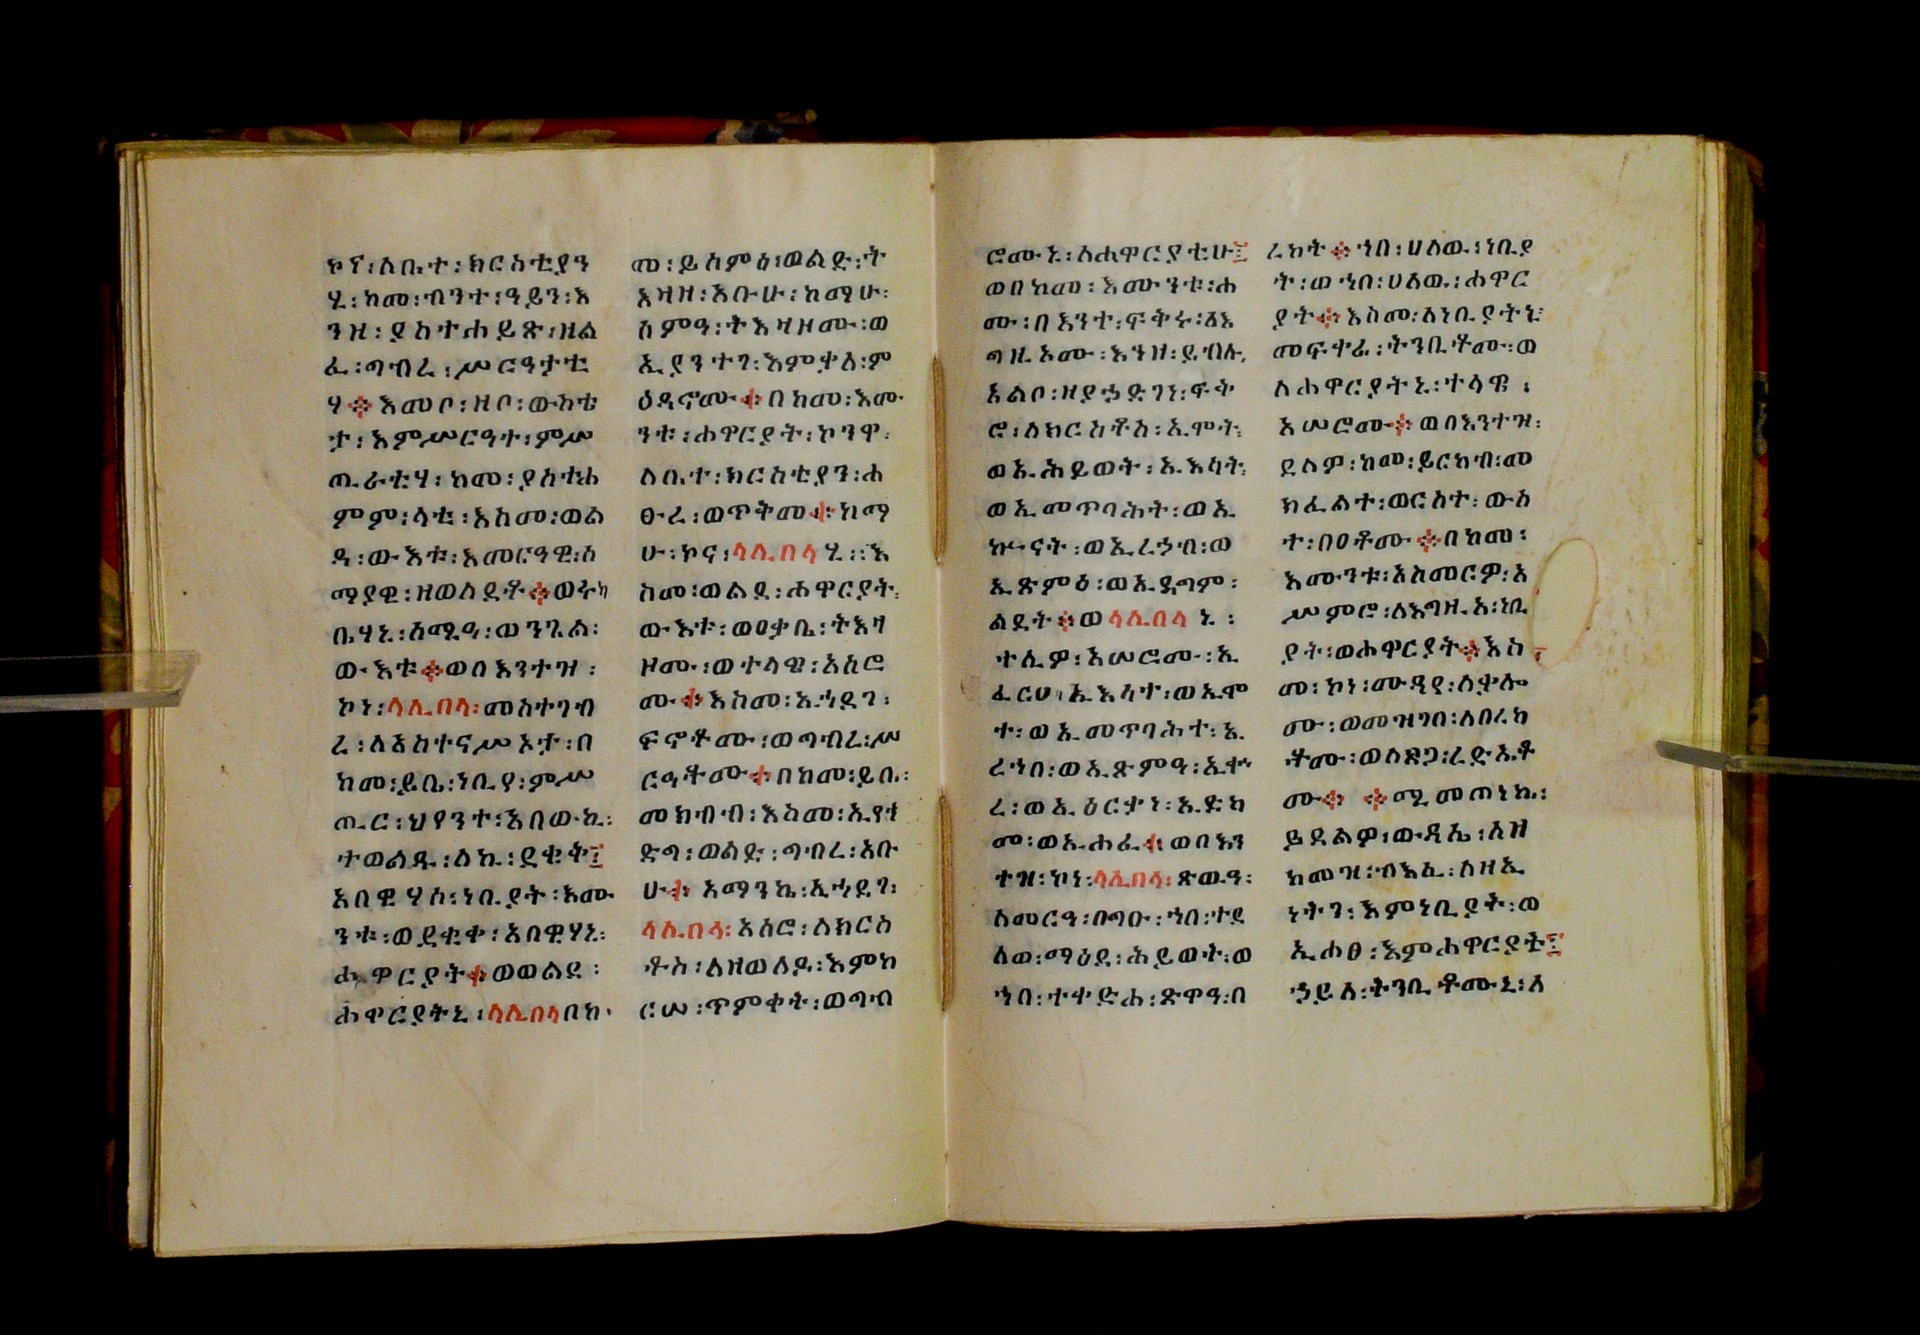 ኮኖ፡ለቤተ፡ክርስቲያን
ሂ፡ከመ፡ብንተ፡ዓይን፡እ
ንዘ፡ያስተሐይጽ፡ዘል
ፈ፡ግብረ፡ሥርዓታቲ
ሃ፨እመቦ፡ዘቦ፡ውስቴ
ታ፡እምሥርዓተ፡ምሥ
ጢራቲሃ፡ከመ፡ያስተሐ
ምም፡ላቲ፡እስመ፡ወል
ዳ፡ውእቱ፡እመርዓዊ፡ሰ
ማያዊ፡ዘወለደቶ፨ወ
ቢሃኒ፡ሰማዒ፡ወንጌል፡
ውእቱ፨ወበእንተዝ፡
ኮነ፡ላሊበላ፡መስተገብ
ረ፡ለአስተናሥኦታ፡በ
ከመ፡ይቤ፡ነቢየ፡ምሥ
ጢር፡ህየንተ፡አበውኪ፡
ተወልዱ፡ለኪ፡ደቂቅ፤
አበዊሃሰ፡ነቢያት፡እሙ
ንቱ፡ወደቂቀ፡አበዊሃኒ፡
ሐዋርያት፨ወወልደ፡
ሐዋርያትኒ፡ላሊበላበከ
መ፡ይሰምዕ፡ወልድ፡ት
እዛዘ፡አቡሁ፡ከማሁ፡
ሰምዓ፡ትእዛዞሙ፡ወ
ኢያንተገ፡እምቃለ፡ም
ዕዳኖሙ፨በከመ፡እሙ
ንቱ፡ሐዋርያት፡ኮንዋ፡
ለቤተ፡ክርስቲያን፡ሐ
ፁረ፡ወጥቅመ፨ከማ
ሁ፡ኮና፡ላሊበላሂ፡እ
ስመ፡ወልደ፡ሐዋርያት፡
ውእቱ፡ወዐቃቤ፡ትእዛ
ዞሙ፡ወተላዌ፡አሰሮ
ሙ፨እስመ፡ኢኀደገ፡
ፍኖቶሙ፡ወግብረ፡ሥ
ርዓቶሙ፨በከመ፡ይቤ፡
መክብብ፡እስመ፡ኢየኀ
ድግ፡ወልድ፡ግብረ፡አቡ
ሁ፨አማንኬ፡ኢኀደገ፡
ላሊበላ፡አሰሮ፡ለክርስ
ቶስ፡ለዘወለዶ፡እምከ
ርሠ፡ጥምቀት፡ወግብ
ሮሙኒ፡ለሐዋርያቲሁ፤
ወበከመ፡እሙንቱ፡ሐ
ሙ፡በእንተ፡ፍቅሩ፡ለእ
ግዚኦሙ፡እንዘ፡ይብሉ
አልቦ፡ዘያኃድገነ፡ፍቅ
ሮ፡ለክርስቶስ፡ኢሞት፡
ወኢሕይወት፡ኢእሳት፡
ወኢመጥባሕት፡ወኢ
ኵናት፡ወኢረኃብ፡ወ
ኢጽምዕ፡ወኢዴግም፡
ልደት፨ወላሊበላኒ፡
ተሊዎ፡አሠሮሙ፡ኢ
ፈርሀ፡ኢእሳተ፡ወኢሞ
ተ፡ወኢመጥባሕተ፡ኢ
ረኀበ፡ወኢጽምዓ፡ኢቍ
ረ፡ወኢዕርቃነ፡ኢድካ
መ፡ወኢሐፈ፨ወበእን
ተዝ፡ኮነ፡ላሊበላ፡ጽዉዓ፡
ለመርዓ፡በግዑ፡ኀበ፡ተደ
ለወ፡ማዕደ፡ሕይወት፡ወ
ኀበ፡ተቀድሐ፡ጽዋዓ፡በ
ረከት፨ኀበ፡ሀለዉ፡ነቢያ
ት፡ወኀበ፡ሀለዉ፡ሐዋር
ያት፨እስመ፡ለነቢያትኒ፡
መፍቀሬ፡ትንቢቶሙ፡ወ
ለሐዋርያትኒ፡ተላዌ፡
አሠሮሙ፨ወበእንተዝ፡
ደለዎ፡ከመ፡ይርከብ፡መ
ክፈልተ፡ወርስተ፡ውስ
ተ፡በዐቶሙ፨በከመ፡
እሙንቱ፡አስመርዎ፡አ
ሥምሮ፡ለእግዚአ፡ነቢ
ያት፡ወሐዋርያት፨እስ
መ፡ኮነ፡ሙዳየ፡ለቃሎ
ሙ፡ወመዝገበ፡ለበረከ
ቶሙ፡ወለጸጋ፡ረድኤቶ
ሙ፨ ፨ሚመጠነኬ፡
ይደልዎ፡ውዳሴ፡ለዝ
ከመዝ፡ብእሲ፡ለዘኢ
ነትገ፡እምነቢያት፡ወ
ኢሐፀ፡እምሐዋርያት፤
ኃይለ፡ትንቢቶሙኒ፡ለ